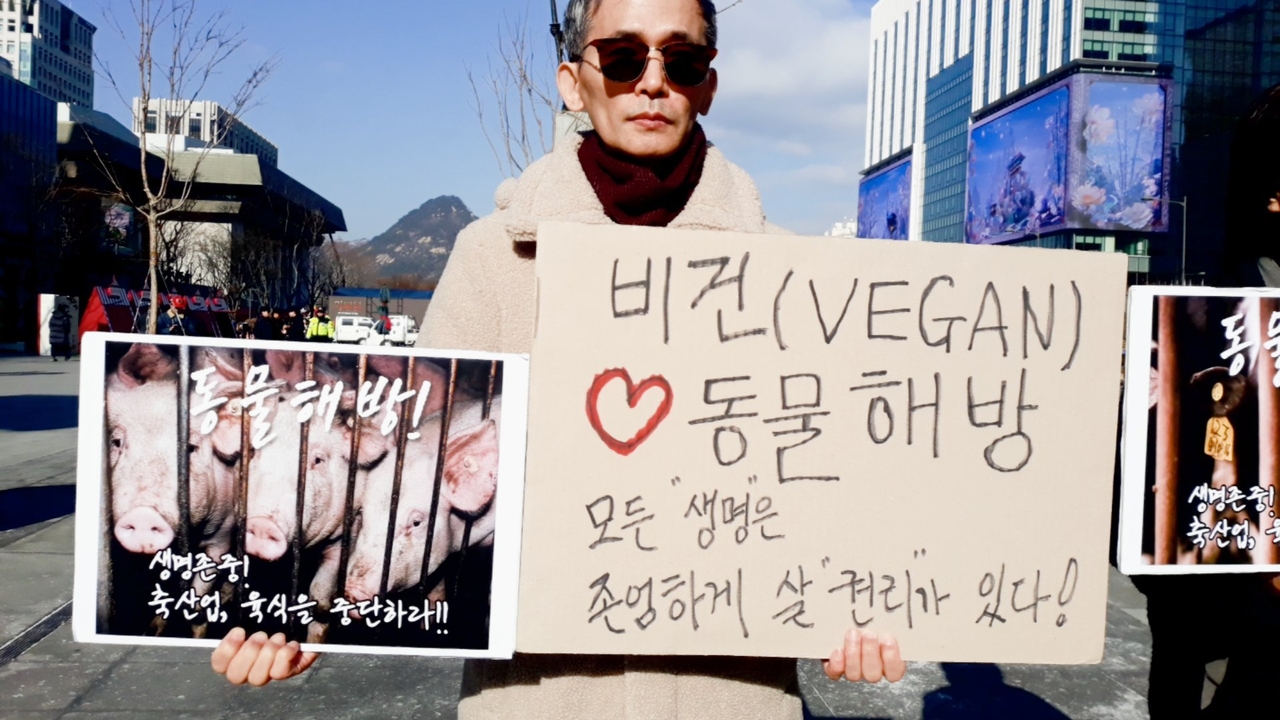 동물해방!
생명존중!
축산업, 육식을 중단하라!!
비건(VEGAN)
동물해방
모든 "생명"은
존엄하게 살 "권리"가 있다!
동물
생명존중!
축산업, 육